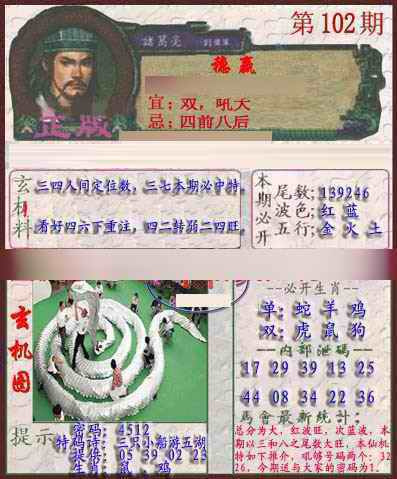 第102期
諸葛亮
劉伯軍
穩贏
宜：双，吼大
忌：四前八后
正版
玄机料
三四人间定位数，三七本期必中特。
看好四六下重注，四二转弱二四旺。
本期必开
尾数：139246
波色：红 蓝
五行：金 火 土
玄机图
必开生肖
单：蛇 羊 鸡
双：虎 鼠 狗
内部泄码
17 29 39 13 25
44 08 34 22 36
馬會最新統計：
总分为大，红波旺，次蓝波，本期以三和八之尾数大旺，本仙机特如下推介，吼够号码两个：3226，今期送与大家的密码为1.
提示
密码：4512
特码诗：三只小船游五湖
提倍：05 39 02 23
生肖：鼠、鸡